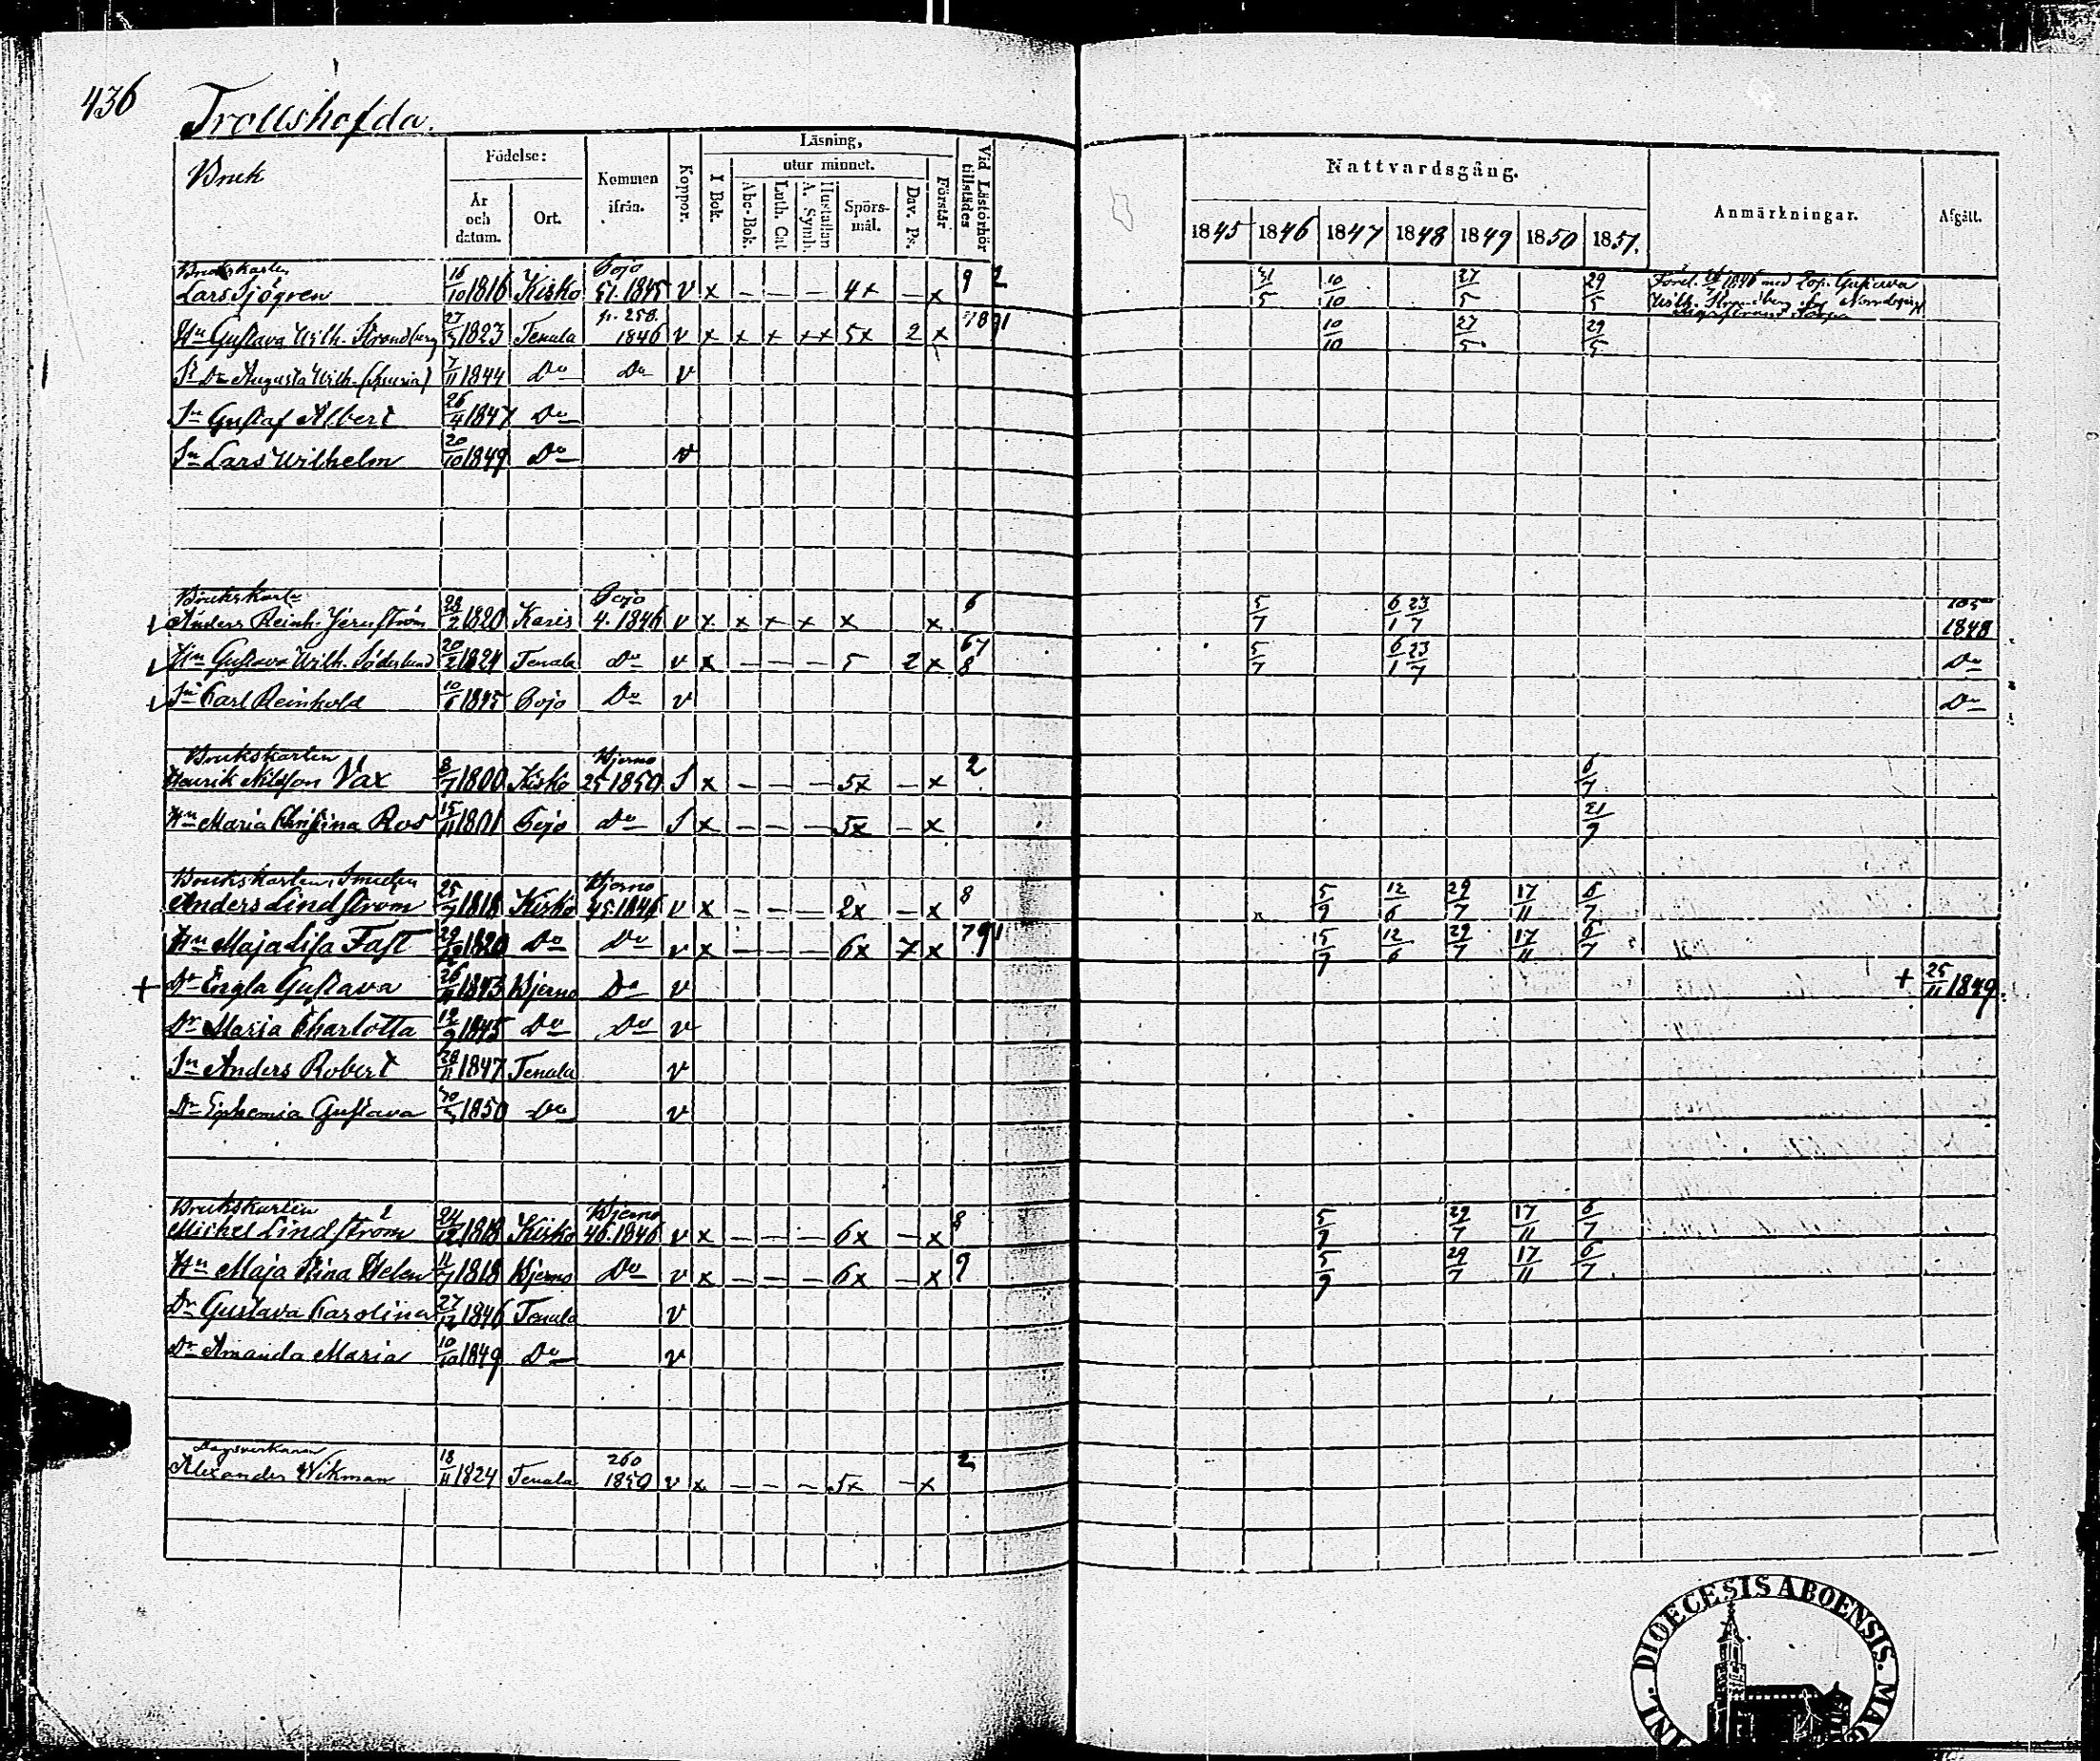 436
Trollshofda.
Bruk
Födelse:
År och datum.
Ort.
Kommen ifrån.
Koppor.
Läsning,
I Bok.
utur minnet.
Abc-Bok.
Luth. Cat
Hustaflan A. Symb.
Spörs-mål.
Dav. Ps.
Förstår
Vid Läsförhör tillstädes
Nattvardsgång.
1845 1846 1847 1848 1849 1850 1851.
Anmärkningar.
Afgått.
Brukskarlen Pojo
Lars Sjögren 16/10 1816 Kisko 51. 1845 v x — — — 4x — x 9 2 31/5 10/10 27/5 29/5 1846 med
p. 258.
Hn Gustava Wilh. Strandberg 1823 Tenala 1846 v x x x xx 5x 2 x 10/10 27/5 29/5
Augusta Wilh. 7/11 1844 Do Do v
Sn Gustaf Albert 26/4 1847 Do
Sn Lars Wilhelm 20/10 1849 Do v
Brukskarln Pojo 6
Anders Reinh. 28/2 1820 Karis 4. 1846 v x x x x x x 5/7 6/1 23/7 1848
Hn Gustava Wilh. Söderlund 20/2 1824 Tenala Do v x — — — 5 2 x 67 8 5/7 6/1 23/7 Do
Sn Carl Reinhold 1845 Pojo Do v Do
Brukskarlen Bjerno
Henrik Nilsson Vax 8/7 1800 Kisko 25 1850 S x — — — 5x — x 2 6/7
Hn Maria Christina Ros 15/11 1801 Pojo Do S x — — — 5x — x 21/9
Brukskarlen, Smeden Bjerno
Anders Lindström 25/7 1818 Kisko 45. 1846 v x — — — 2x — x 8 5/9 12/6 29/7 17/11 6/7
Hn Maja Lisa Fast 1820 Do Do v x — — — 6x 7 x 791 15/7 12/6 29/7 17/11 6/7
+ Dr Engla Gustava 1843 Bjerno Do v + 25/11 1849.
Dr Maria Charlotta 12/9 1845 Do Do v
Sn Anders Robert 28/11 1847 Tenala v
Dr Ephemia Gustava 1850 Do v
Brukskarlen Bjerno
Michel Lindström 24/12 1818 Kisko 46. 1846 v x — — — 6x — x 8 5/9 29/7 17/11 6/7
Hn Maja Stina Helen 11/7 1818 Bjerno Do v x — — — 6x — x 9 5/9 29/7 17/11 6/7
Dr Gustava Carolina 27/12 1846 Tenala v
Dr Amanda Maria 10/10 1849 Do v
Dagsverkaren 260
Alexander Wikman 18/11 1824 Tenala 1850 v x — — — 5x — x 2
DIOECESIS ABOENSIS.